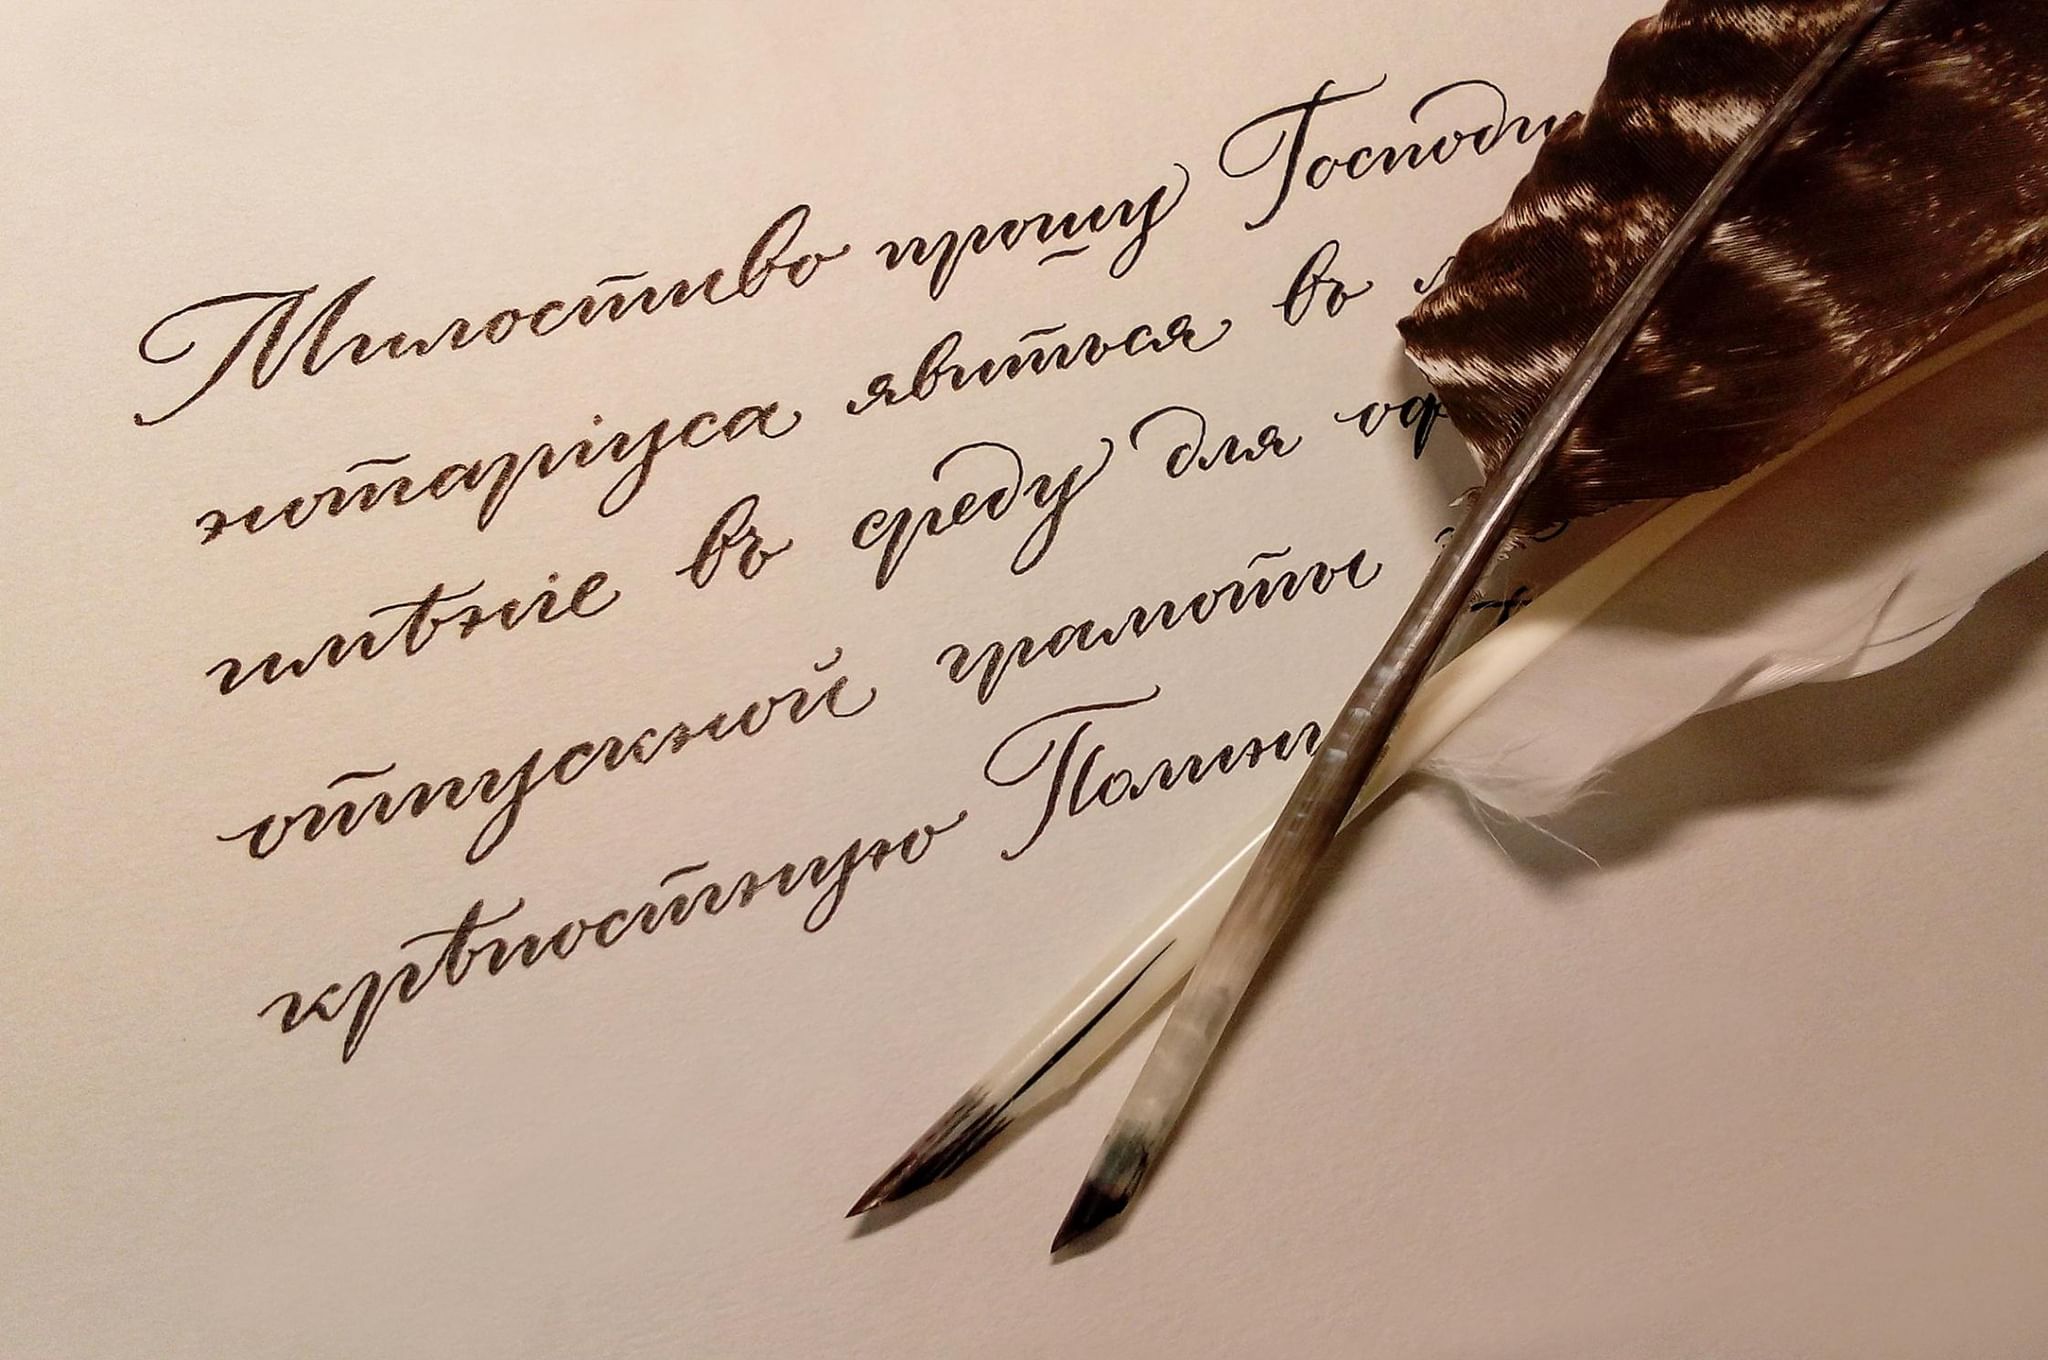 Милостиво прошу
нотаріуса явиться въ
имѣніе въ среду для
отпускной грамоты
крѣпостную